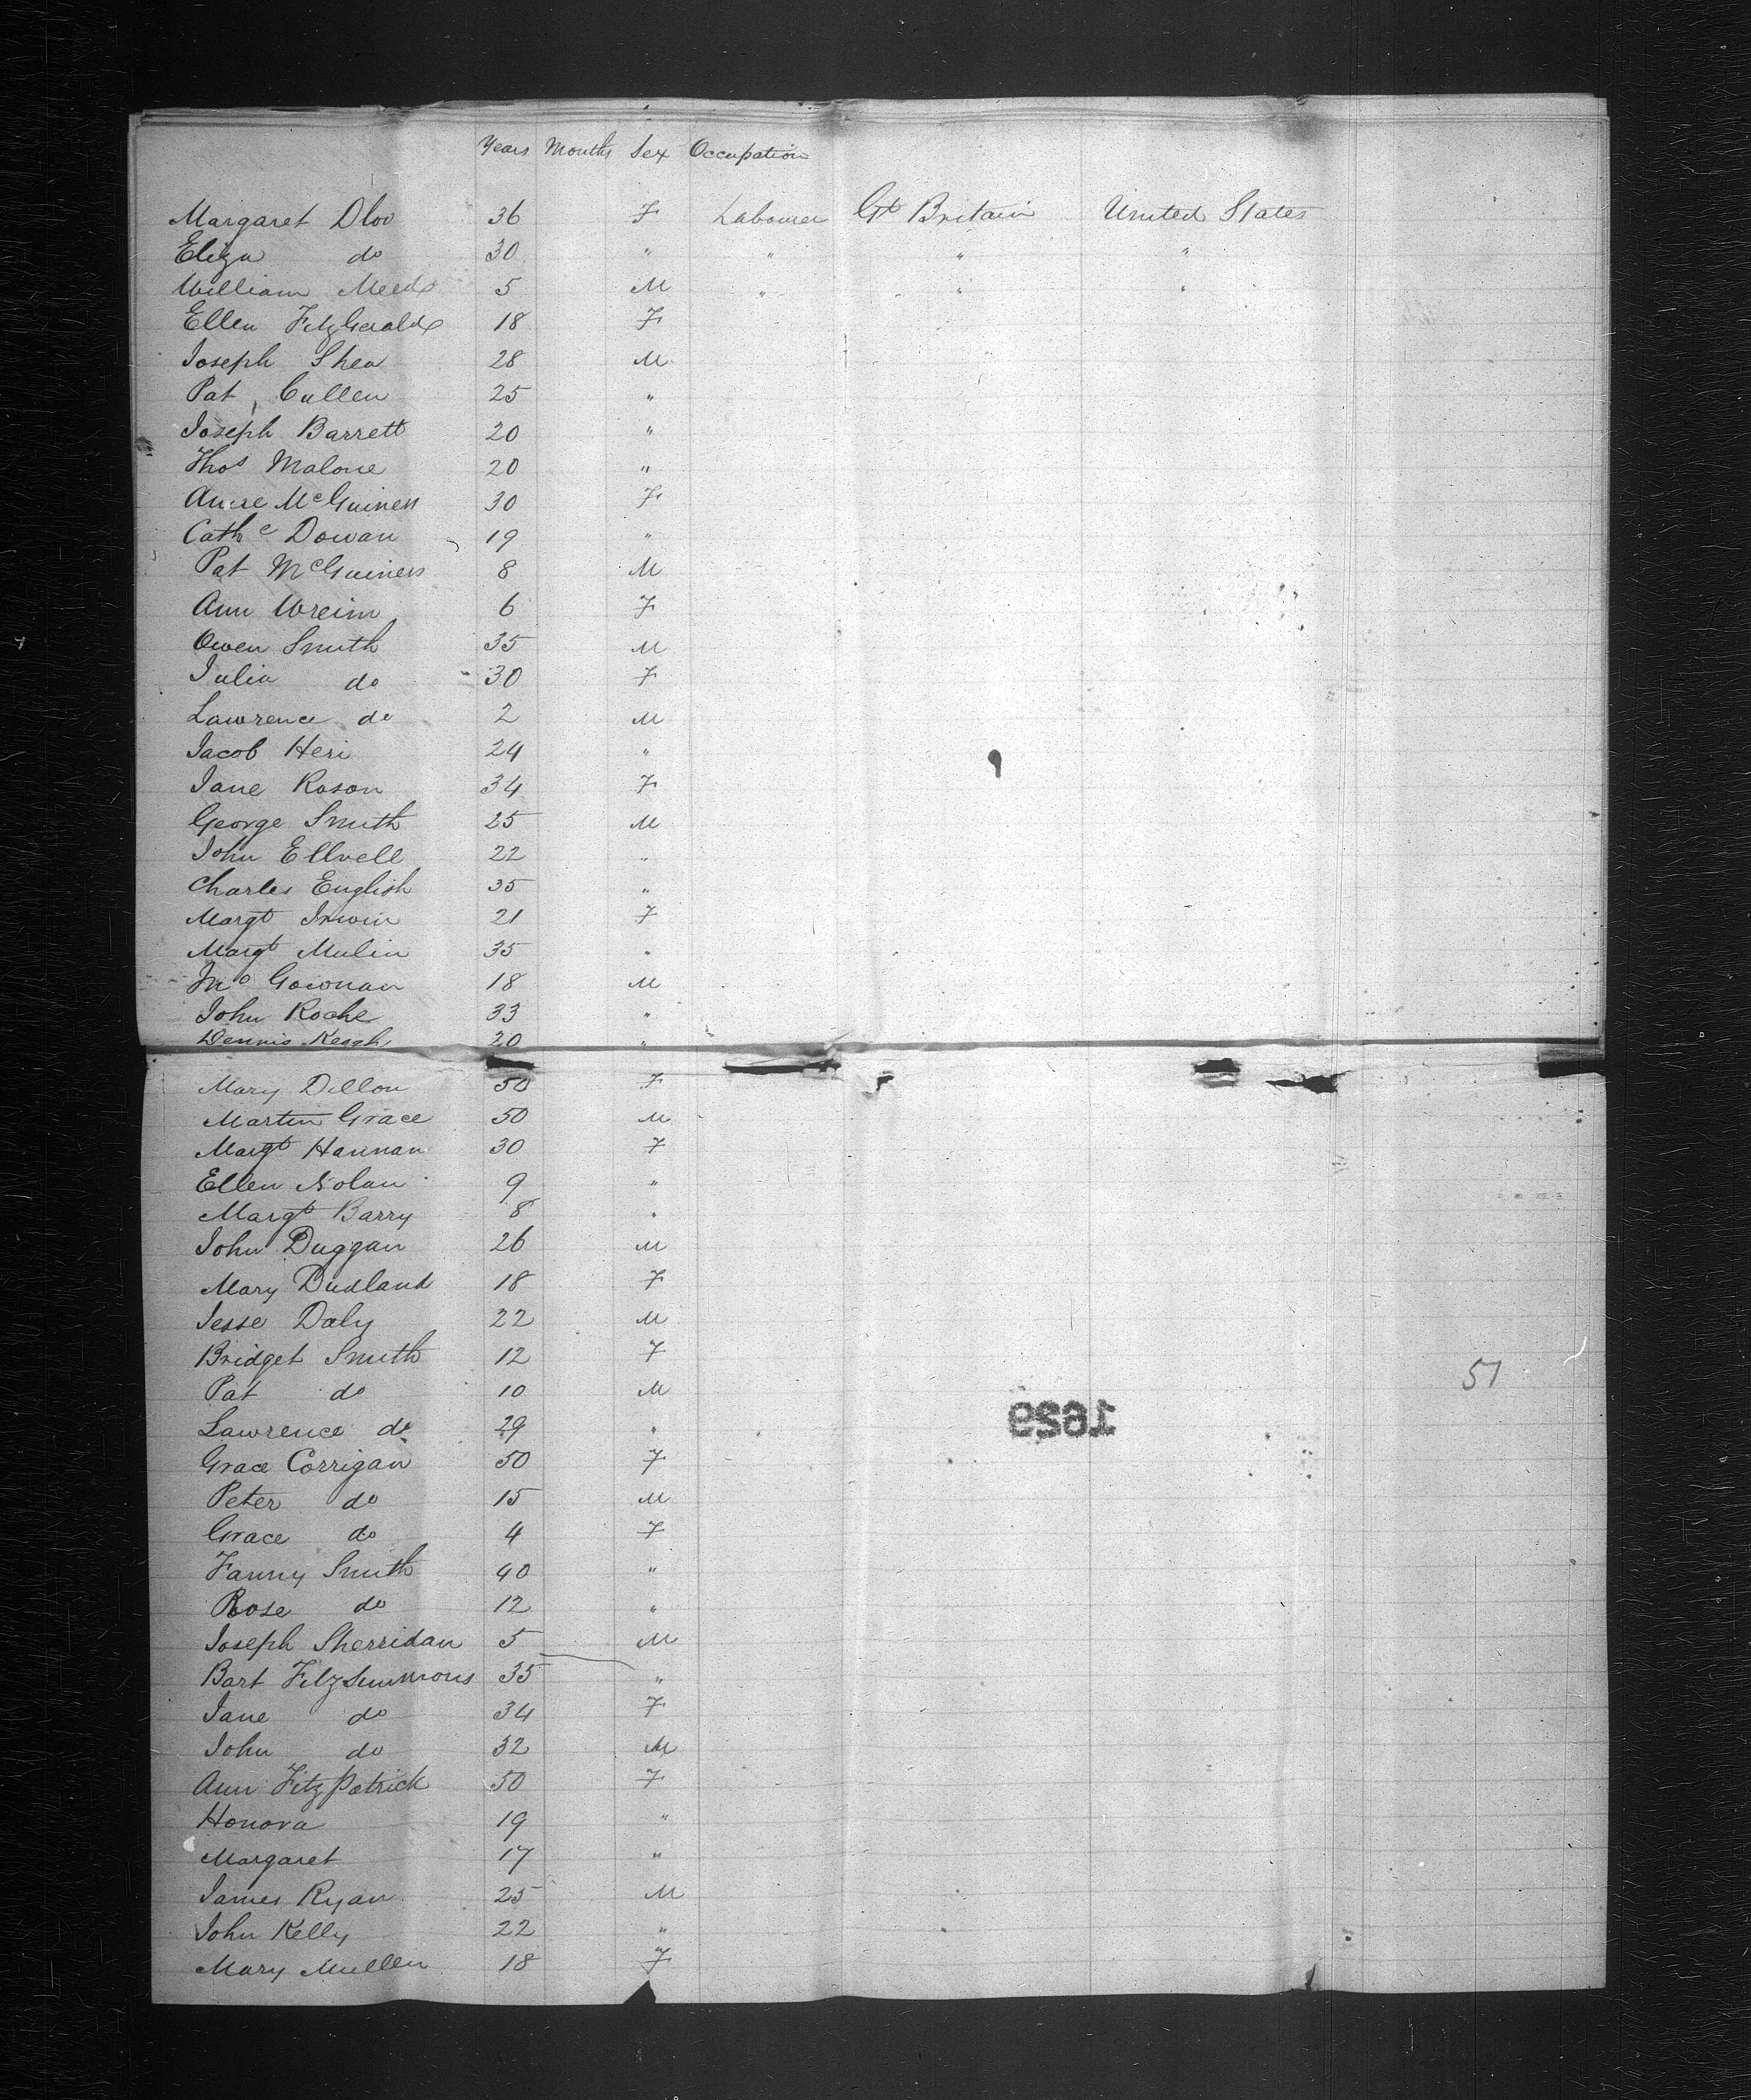 Years Months Sex Occupation
Margaret Dloo 36 F Labourer Gt Britain United States
Eliza do 30 " " " "
William Meeds 5 M " " "
Ellen FitzGerald 18 F
Joseph Shea 28 M
Pat Cullen 25 "
Joseph Barrett 20 "
Thos Malone 20 "
Anne McGuiness 30 F
Cathe Dowan 19 "
Pat McGuiness 8 M
Ann 6 F
Owen Smith 35 M
Julia do 30 F
Lawrence do 2 M
Jacob Heri 24 "
Jane Roson 34 F
George Smith 25 M
John Ellvell 22 "
Charles English 35 "
Margt Irwin 21 F
Margt Mulin 35 "
Jno Gownan 18 M
John Roche 33 "
Dennis Keogh 20 "
Mary Dillon 50 F
Martin Grace 50 M
Margt Hannan 30 F
Ellen Nolan 9 "
Margt Barry 8 "
John Duggan 26 M
Mary Dudland 18 F
Jesse Daly 22 M
Bridget Smith 12 F
Pat do 10 M
51
Lawrence do 29 "
1629
Grace Corrigan 50 F
Peter do 15 M
Grace do 4 F
Fanny Smith 40 "
Rose do 12 "
Joseph Sherridan 5 M
Bart FitzSimmons 35 "
Jane do 34 F
John do 32 M
Ann FitzPatrick 50 F
Honora 19 "
Margaret 17 "
James Ryan 25 M
John Kelly 22 "
Mary Mullen 18 F